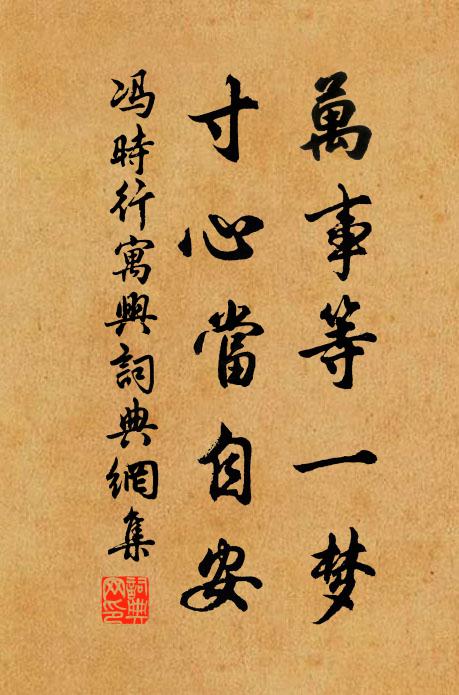 萬事等一梦
寸心當自安
冯時行寓興詞典網集
詞典网印